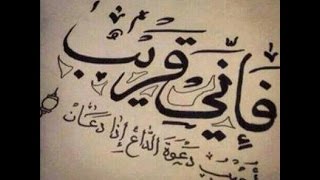 فَإِنِّي قَرِيبٌ
أجيب دعوة الداع إذا دعان